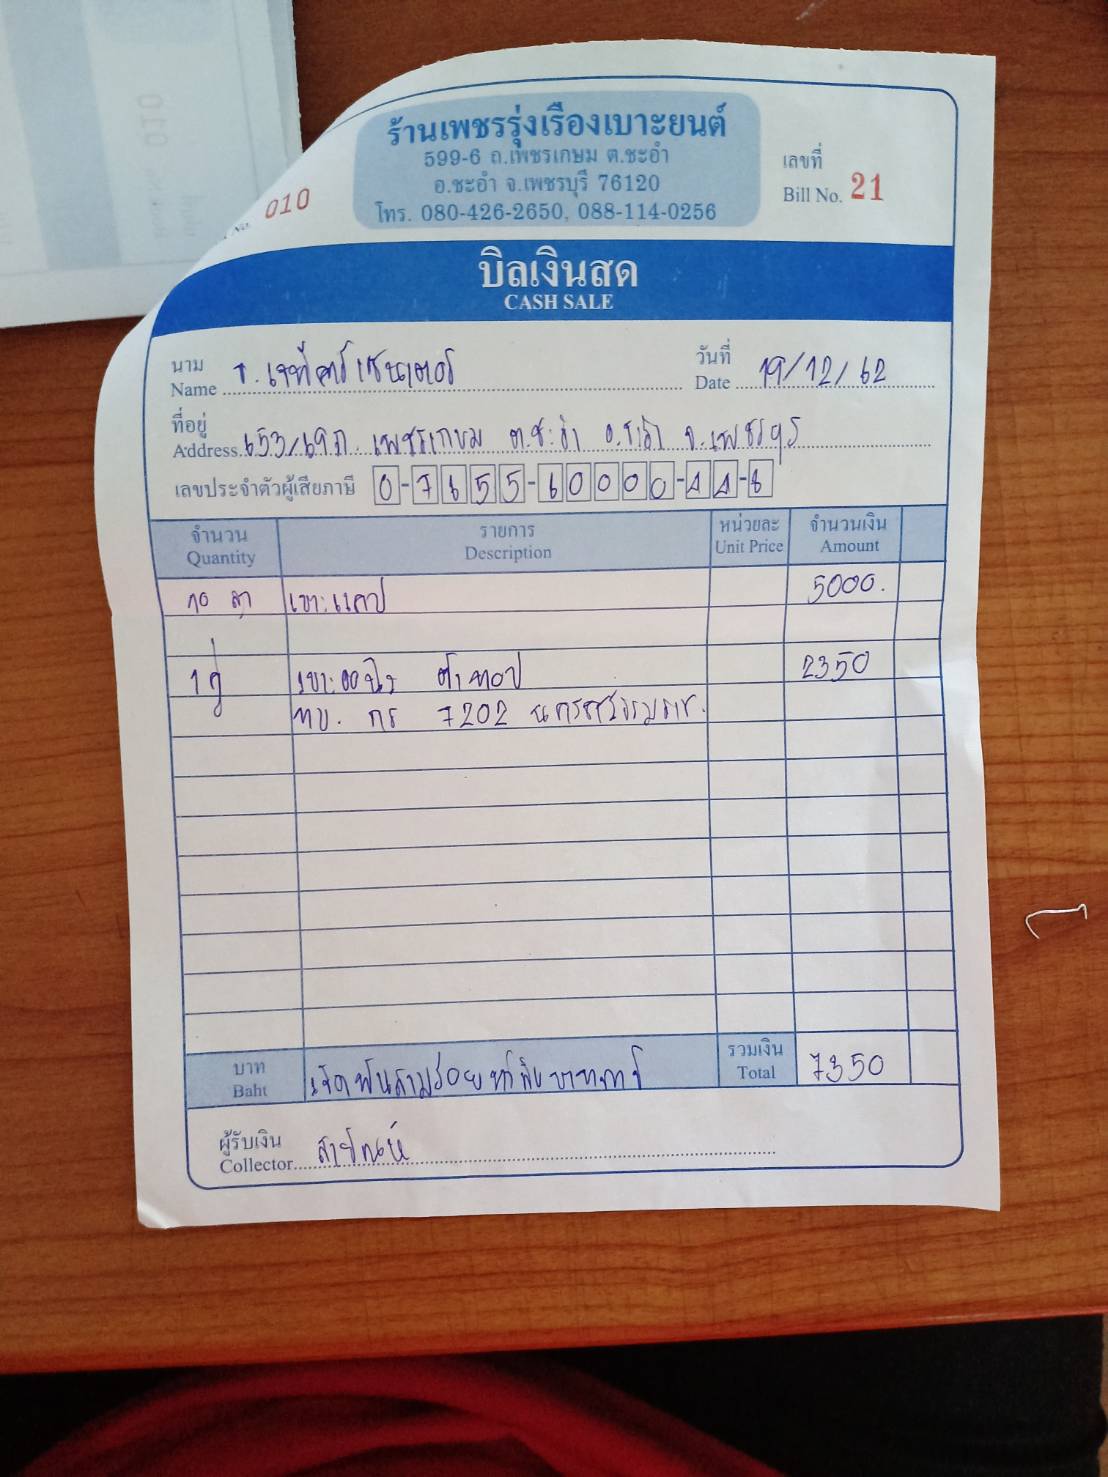 ร้านเพชรรุ่งเรืองเบาะยนต์
599-6 ถ.เพชรเกษม ต.ชะอำ
อ.ชะอำ จ.เพชรบุรี 76120
โทร. 080-426-2650, 088-114-0256
เลขที่
Bill No. 21
No. 010
บิลเงินสด
CASH SALE
นาม
Name
วันที่
Date 19/12/62
ที่อยู่
Address 653/69 ถ. เพชรเกษม ต.ชะอำ อ.ชะอำ จ.เพชรบุรี
เลขประจำตัวผู้เสียภาษี 0-7655-60000-44-6
จำนวน รายการ หน่วยละ จำนวนเงิน
Quantity Description Unit Price Amount
10 ลูก เบาะแคป 5000.
1 คู่ เบาะ 2350
ทบ. กร 7202 นครศรีธรรมราช.
บาท เจ็ดพันสามร้อยห้าสิบบาทถ้วน รวมเงิน 7350
Baht Total
ผู้รับเงิน
Collector
010